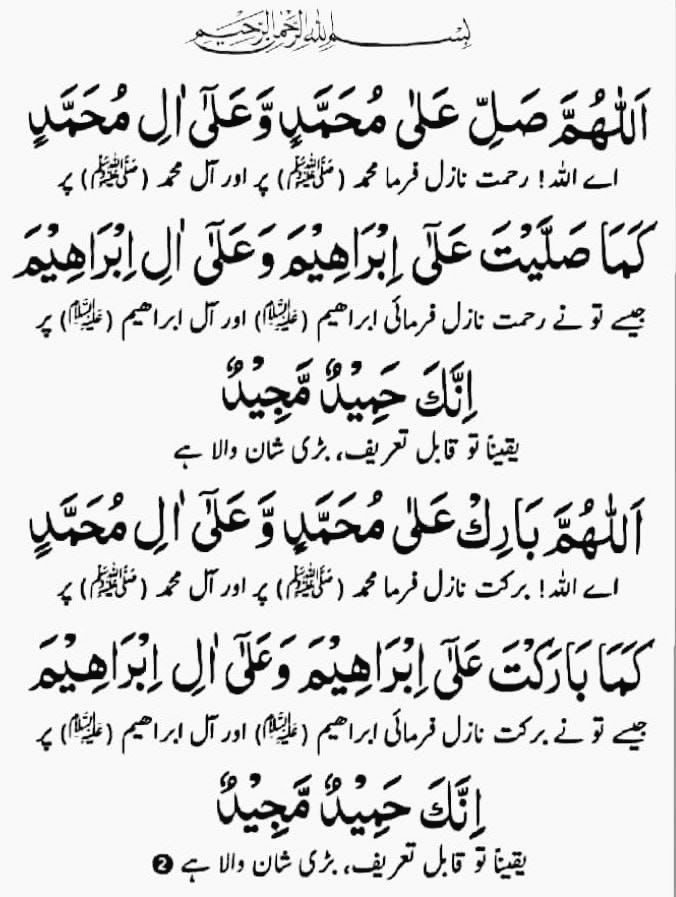 بِسْمِ اللهِ الرَّحْمٰنِ الرَّحِيْمِ
اَللّٰهُمَّ صَلِّ عَلٰى مُحَمَّدٍ وَّعَلٰٓى اٰلِ مُحَمَّدٍ
اے اللہ! رحمت نازل فرما محمد (ﷺ) پر اور آل محمد (ﷺ) پر
كَمَا صَلَّيْتَ عَلٰٓى اِبْرَاهِيْمَ وَعَلٰٓى اٰلِ اِبْرَاهِيْمَ
جیسے تو نے رحمت نازل فرمائی ابراھیم (علیہ السلام) اور آل ابراھیم (علیہ السلام) پر
اِنَّكَ حَمِيْدٌ مَّجِيْدٌ
یقیناً تو قابل تعریف، بڑی شان والا ہے
اَللّٰهُمَّ بَارِكْ عَلٰى مُحَمَّدٍ وَّ عَلٰٓى اٰلِ مُحَمَّدٍ
اے اللہ! برکت نازل فرما محمد (ﷺ) پر اور آل محمد (ﷺ) پر
كَمَا بَارَكْتَ عَلٰٓى اِبْرَاهِيْمَ وَعَلٰٓى اٰلِ اِبْرَاهِيْمَ
جیسے تو نے برکت نازل فرمائی ابراھیم (علیہ السلام) اور آل ابراھیم (علیہ السلام) پر
اِنَّكَ حَمِيْدٌ مَّجِيْدٌ
یقیناً تو قابل تعریف، بڑی شان والا ہے ❷